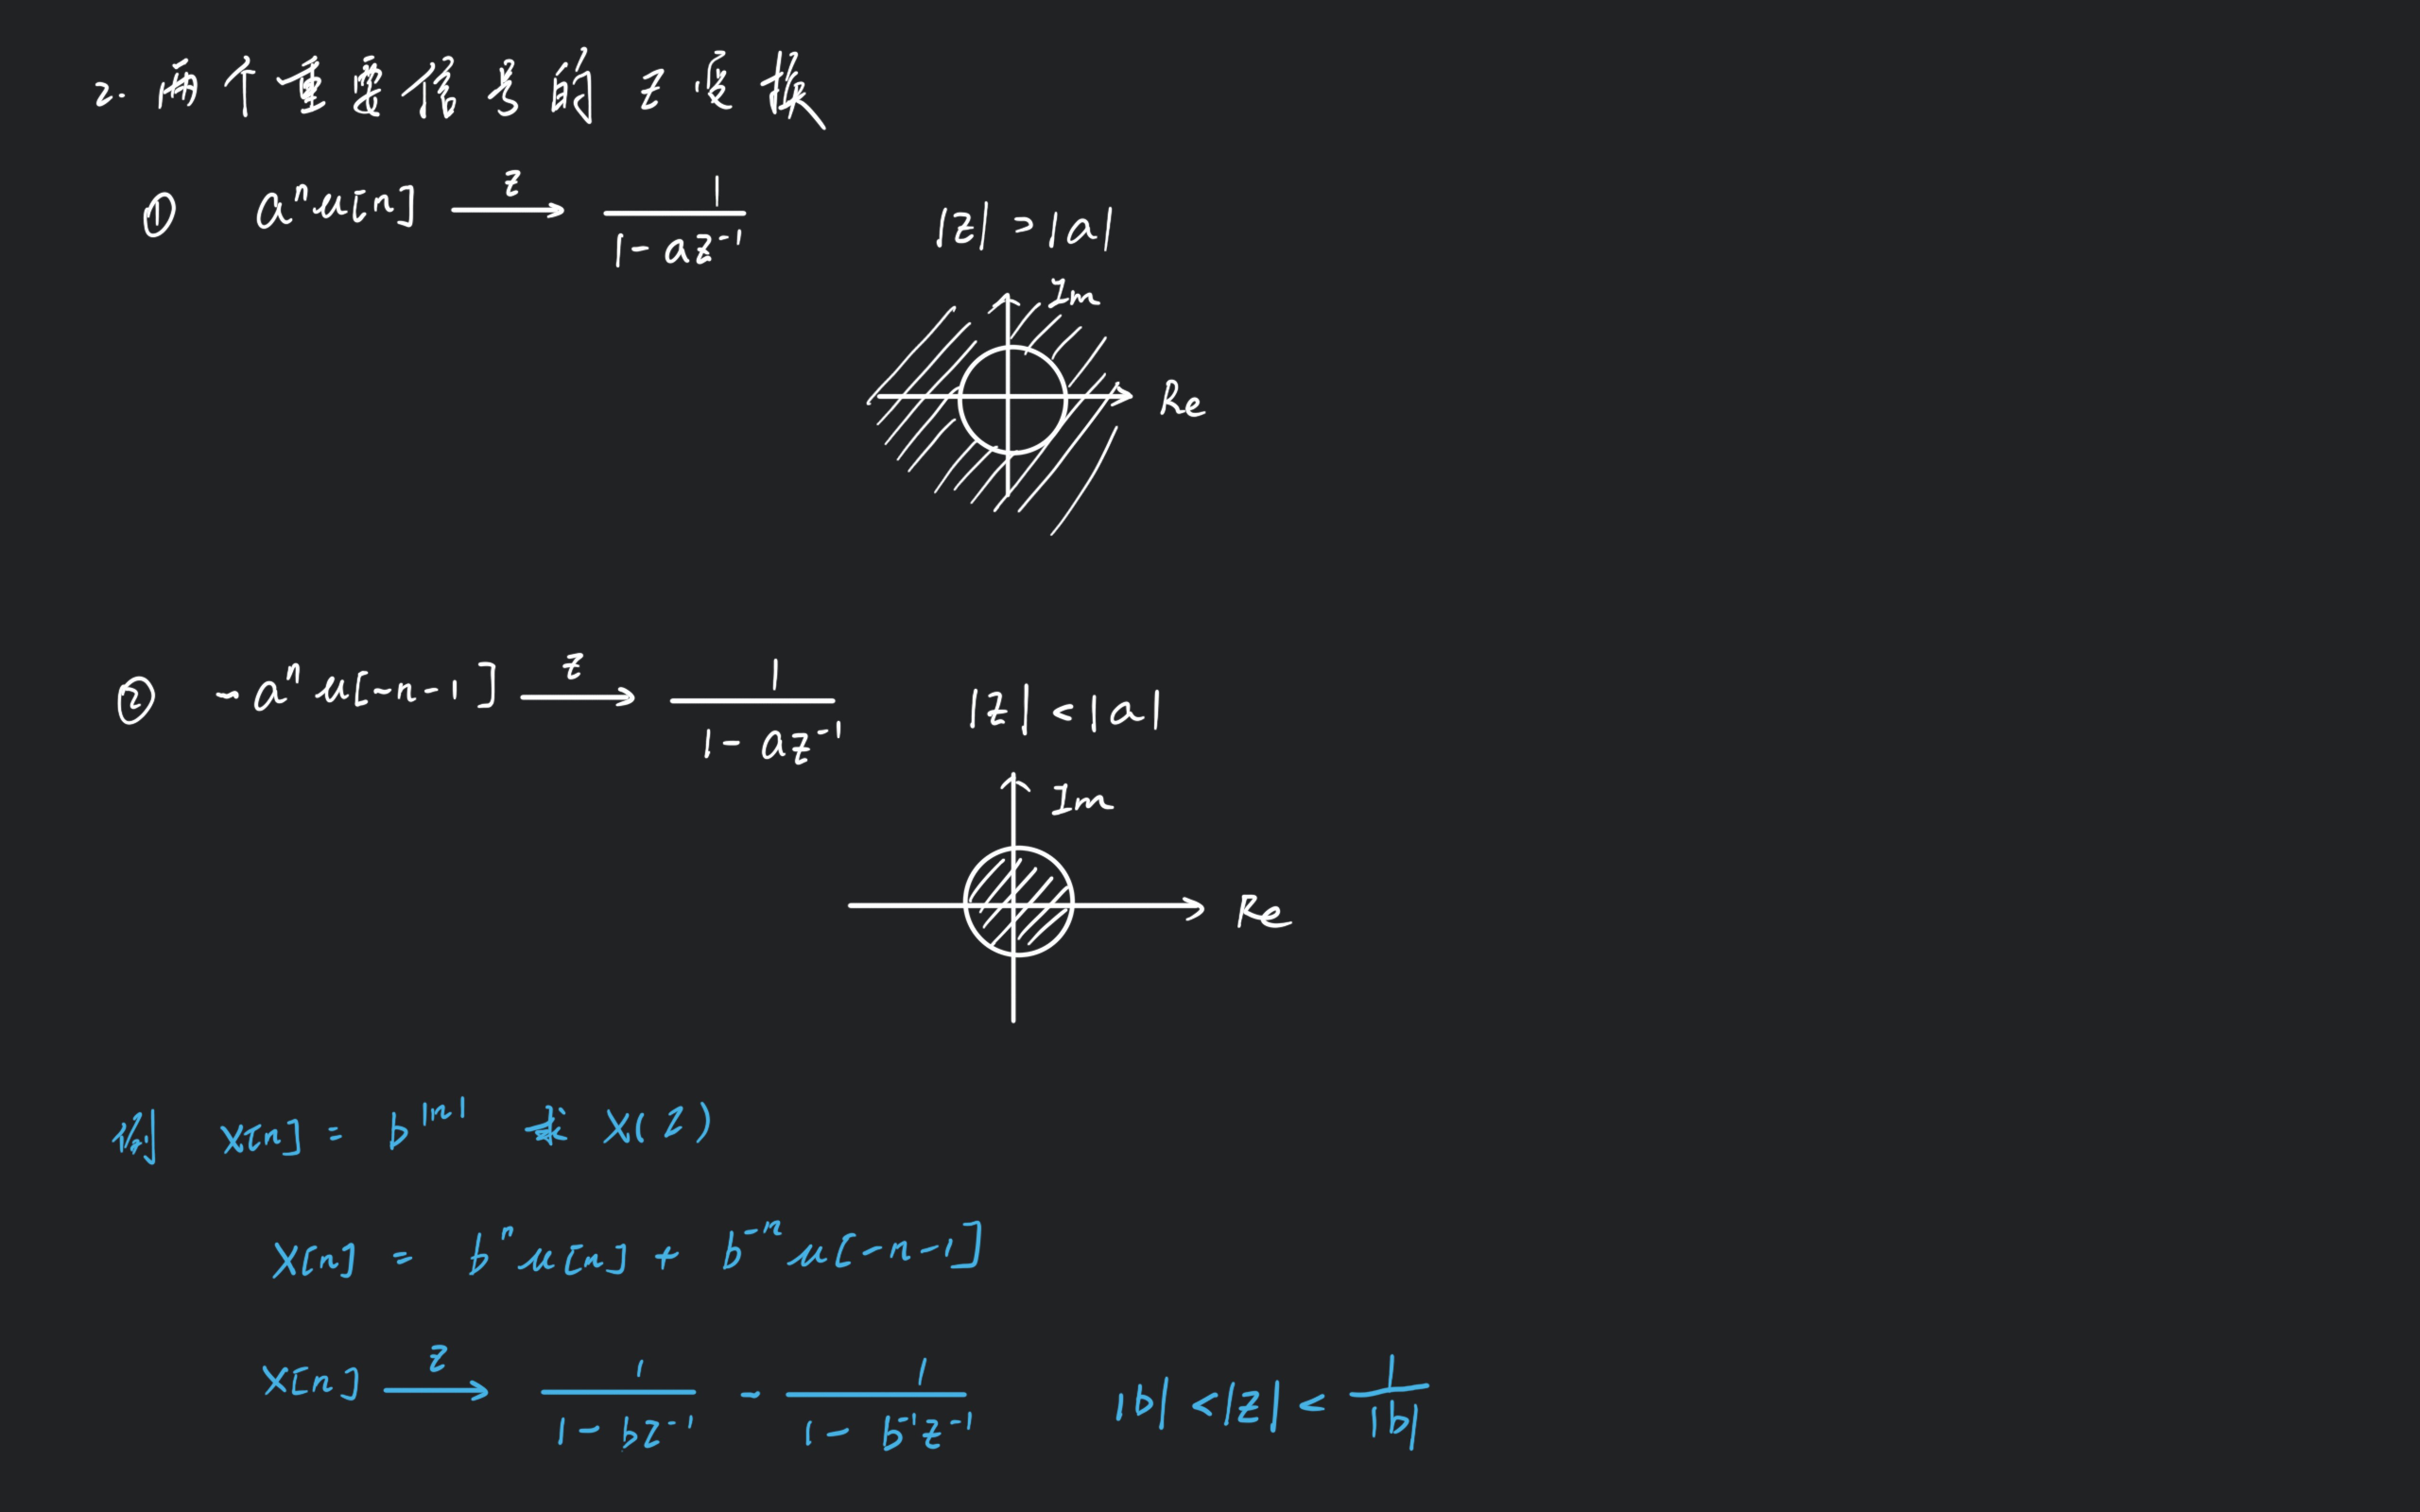 2. 两个重要信号的 Z 变换
① aⁿu[n] —z→ 1/(1-az⁻¹) |z|>|a|
Im
Re
② -aⁿu[-n-1] —z→ 1/(1-az⁻¹) |z|<|a|
Im
Re
例 x[n] = b^|n| 求 X(Z)
x[n] = bⁿu[n] + b⁻ⁿu[-n-1]
x[n] —z→ 1/(1-bz⁻¹) - 1/(1-b⁻¹z⁻¹) |b|<|z|<1/|b|